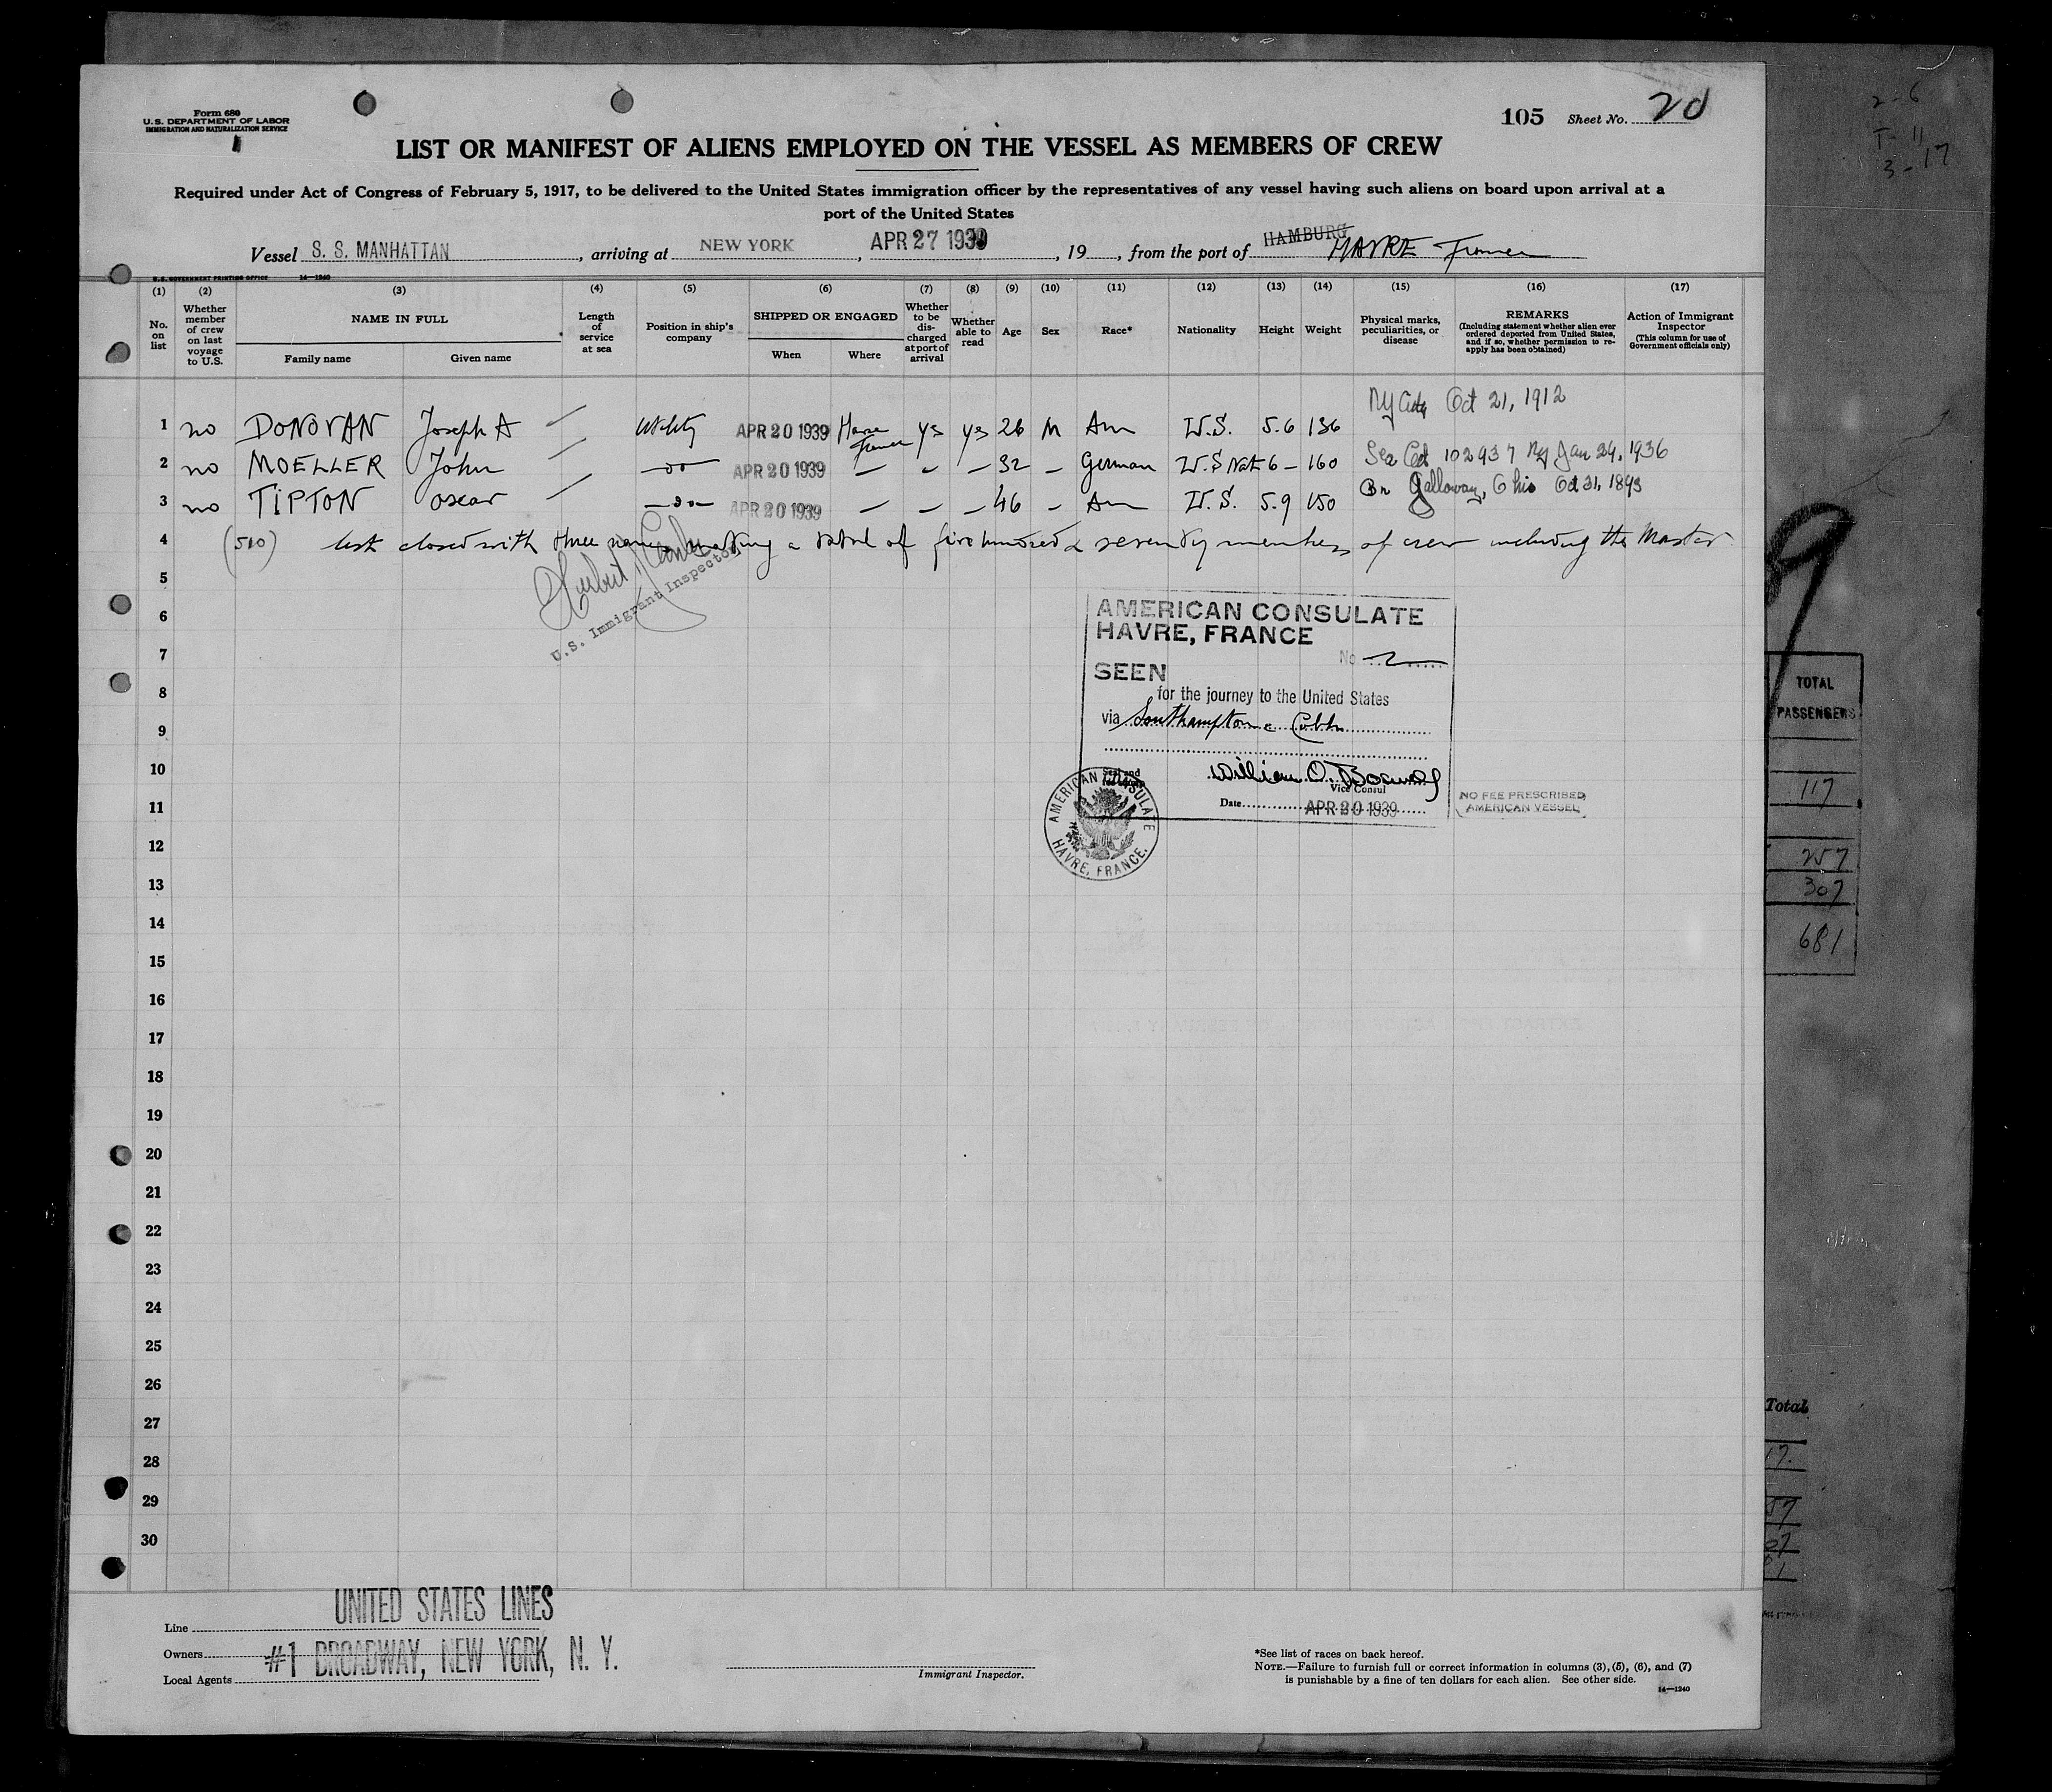 Form 680
U.S. DEPARTMENT OF LABOR
IMMIGRATION AND NATURALIZATION SERVICE
105 Sheet No. 20
LIST OR MANIFEST OF ALIENS EMPLOYED ON THE VESSEL AS MEMBERS OF CREW
Required under Act of Congress of February 5, 1917, to be delivered to the United States immigration officer by the representatives of any vessel having such aliens on board upon arrival at a
port of the United States
Vessel S. S. MANHATTAN, arriving at NEW YORK, APR 27 1939, 19, from the port of HAMBURG HAVRE France
U.S. GOVERNMENT PRINTING OFFICE 14—1240
(1) (2) (3) (4) (5) (6) (7) (8) (9) (10) (11) (12) (13) (14) (15) (16) (17)
No. on list
Whether member of crew on last voyage to U.S.
NAME IN FULL
Family name
Given name
Length of service at sea
Position in ship's company
SHIPPED OR ENGAGED
When
Where
Whether to be discharged at port of arrival
Whether able to read
Age
Sex
Race*
Nationality
Height
Weight
Physical marks, peculiarities, or disease
REMARKS
(Including statement whether alien ever ordered deported from United States, and if so, whether permission to reapply has been obtained)
Action of Immigrant Inspector
(This column for use of Government officials only)
NY City Oct 21, 1912
1 no DONOVAN Joseph A Utility APR 20 1939 Havre France yes yes 26 M Am U.S. 5.6 136
2 no MOELLER John —do— APR 20 1939 — — — 32 — German U.S Nat 6 — 160 Sea Cert 102937 NY Jan 24, 1936
3 no TIPTON Oscar —do— APR 20 1939 — — — 46 — Am U.S. 5.9 150 Bn Galloway, Ohio Oct 31, 1893
4 (510) list closed with three names making a total of five hundred & seventy members of crew including the Master
5
6
7
8
9
10
11
12
13
14
15
16
17
18
19
20
21
22
23
24
25
26
27
28
29
30
U.S. Immigrant Inspector
AMERICAN CONSULATE
HAVRE, FRANCE
No 2
SEEN
for the journey to the United States
via Southampton & Cobh
William O.
Vice Consul
Date APR 20 1939
AMERICAN CONSULATE HAVRE, FRANCE.
NO FEE PRESCRIBED
AMERICAN VESSEL
TOTAL
PASSENGERS
117
257
307
681
Total
UNITED STATES LINES
Line
Owners #1 BROADWAY, NEW YORK, N. Y.
Local Agents
Immigrant Inspector.
*See list of races on back hereof.
NOTE.—Failure to furnish full or correct information in columns (3), (5), (6), and (7)
is punishable by a fine of ten dollars for each alien. See other side.
14—1240